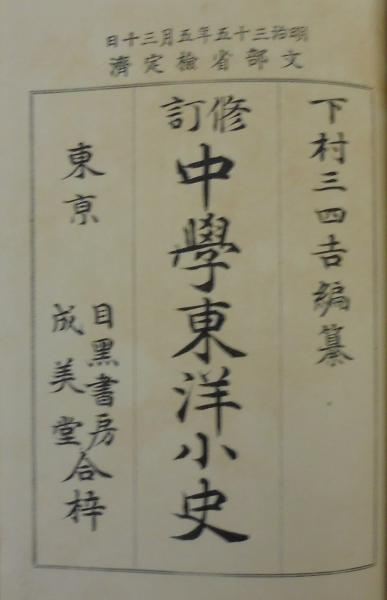 明治三十五年五月三十日
文部省檢定濟
下村三四吉編纂
修訂
中學東洋小史
東亰
目黑書房
成美堂
合梓